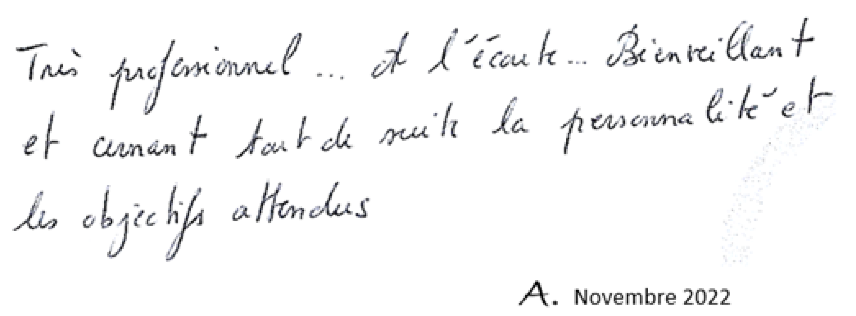 Très professionnel ... A l'écoute ... Bienveillant
et cernant tout de suite la personnalité et
les objectifs attendus
A. Novembre 2022